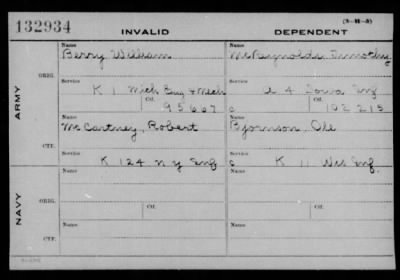 (3-H-5)
132934
INVALID
DEPENDENT
Name
Name
Berry William
McReynolds, Timothy
ORIG.
Service
Service
K 1 Mich Eng & Mech
A 4 Iowa Inf
Ctf.
Ctf.
95667
C 102215
ARMY
Name
Name
McCartney, Robert
Bjornson, Ole
CTF.
Service
Service
K 124 N Y Inf
C K 11 Wis Inf.
Name
Name
ORIG.
Ctf.
Ctf.
NAVY
Name
Name
CTF.